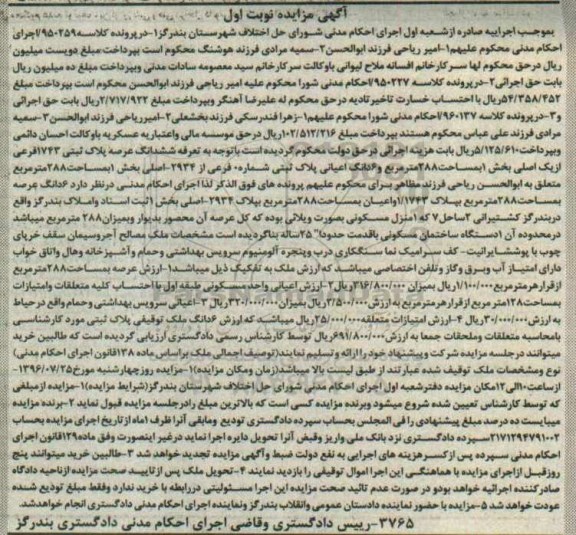 آگهی مزایده نوبت اول
بموجب اجراییه صادره ازشعبه اول اجرای احکام مدنی شورای حل اختلاف شهرستان بندرگز۱-درپرونده کلاسه۹۵۰۲۵۹/اجرای
احکام مدنی محکوم علیهم۱-امیر ریاحی فرزند ابوالحسن۲-سمیه مرادی فرزند هوشنگ محکوم است بپرداخت مبلغ دویست میلیون
ریال درحق محکوم لها سرکارخانم افسانه ملاح لیوانی باوکالت سرکارخانم سید معصومه سادات مدنی وبپرداخت مبلغ ده میلیون ریال
بابت حق اجرائی۲-درپرونده کلاسه ۹۵۰۲۲۷/احکام مدنی شورا محکوم علیه امیر ریاحی فرزند ابوالحسن محکوم است بپرداخت مبلغ
۵۴/۳۵۸/۴۵۲ریال با احتساب خسارت تاخیرتادیه درحق محکوم له علیرضا آهنگر وبپرداخت مبلغ ۲/۷۱۷/۹۲۲ریال بابت حق اجرائی
و۳-درپرونده کلاسه ۹۶۰۱۲۷/احکام مدنی شورا محکوم علیهم۱-زهرا فندرسکی فرزند بخشعلی۲-امیرریاحی فرزند ابوالحسن۳-سمیه
مرادی فرزند علی عباس محکوم هستند بپرداخت مبلغ ۱۰۲/۵۱۲/۲۱۶ریال درحق موسسه مالی واعتباریه عسکریه باوکالت احسان دائمی
وبپرداخت۵/۱۲۵/۶۱۰ریال بابت هزینه اجرائی درحق دولت محکوم گردیده است باتوجه به تعرفه ششدانگ عرصه پلاک ثبتی ۱۷۴۳فرعی
ازیک اصلی بخش ۱بمساحت۲۸۸مترمربع و۶دانگ اعیانی پلاک ثبتی شماره۰ فرعی از ۲۹۳۴-اصلی بخش ۱بمساحت۲۸۸مترمربع
متعلق به ابوالحسن ریاحی فرزند مظاهر برای محکوم علیهم پرونده های فوق الذکر لذا اجرای احکام مدنی درنظر دارد ۶دانگ عرصه
بمساحت۲۸۸مترمربع بپلاک ۱/۱۷۴۳واعیان بمساحت۲۸۸مترمربع بپلاک ۲۹۳۴-اصلی بخش ۱ثبت اسناد واملاک بندرگز واقع
دربندرگز کشتیرانی ۲ساحل۷ که۱منزل مسکونی بصورت ویلائی بوده که کل عرصه آن محصور بدیوار وبمیزان۲۸۸ مترمربع میباشد
درمحدوده آن ۱دستگاه ساختمان مسکونی باقدمت حدودا" ۲۵ساله بناگردیده است مشخصات ملک مصالح آجروسیمان سقف خرپای
چوب با پوشش‍ایرانیت- کف سرامیک نما سنگکاری درب وپنجره آلومنیوم سرویس بهداشتی وحمام وآشپزخانه وهال واتاق خواب
دارای امتیاز آب وبرق وگاز وتلفن اختصاصی میباشد که ارزش ملک به تفکیک ذیل میباشد۱-ارزش عرصه بمساحت۲۸۸مترمربع
ازقرارهرمترمربع ۱/۱۰۰/۰۰۰ریال بمیزان ۳۱۶/۸۰۰/۰۰۰ریال۲-ارزش اعیانی واحدمسکونی طبقه اول با احتساب کلیه متعلقات وامتیازات
بمساحت۱۲۸متر مربع ازقرارهرمترمربع به ارزش۲/۵۰۰/۰۰۰ریال به ارزش ۳۲۰/۰۰۰/۰۰۰ریال ۳-اعیانی سرویس بهداشتی وحمام واقع درحیاط
به ارزش۳۰/۰۰۰/۰۰۰ریال ۴-ارزش امتیازات متعلقه۲۵/۰۰۰/۰۰۰ریال میباشد که ارزش ۶دانگ ملک توقیفی پلاک ثبتی مورد کارشناسی
بامحاسبه متعلقات وملحقات جمعا به ارزش۶۹۱/۸۰۰/۰۰۰ریال توسط کارشناس رسمی دادگستری ارزیابی گردیده است که طالبین خرید
میتوانند درجلسه مزایده شرکت وپیشنهاد خود را ارائه وتسلیم نمایند(توصیف اجمالی ملک براساس ماده ۱۳۸قانون اجرای احکام مدنی)
نوع ومشخصات ملک توقیف شده عبارتند از طبق لیست بالا میباشد(زمان ومکان مزایده)۱-مزایده روزچهارشنبه مورخ۱۳۹۶/۰۷/۲۵-
ازساعت۱۰الی۱۲مکان مزایده دفترشعبه اول اجرای احکام مدنی شورای حل اختلاف شهرستان بندرگز(شرایط مزایده)۱-مزایده ازمبلغی
که توسط کارشناس تعیین شده شروع میشود وبرنده مزایده کسی است که بالاترین مبلغ رادرجلسه مزایده قبول نماید ۲-برنده مزایده
میبایست ده درصد مبلغ پیشنهادی را فی المجلس بحساب سپرده دادگستری تودیع ومابقی آنرا ظرف ۱ماه ازتاریخ اجرای مزایده بحساب
۲۱۷۱۲۹۴۷۹۱۰۰۲سپرده دادگستری نزد بانک ملی واریز وقبض آنرا تحویل دایره اجرا نماید درغیر اینصورت وفق ماده۱۲۹قانون اجرای
احکام مدنی سپرده پس ازکسرهزینه های اجرایی به نفع دولت ضبط وآگهی مزایده تجدید خواهد شد ۳-طالبین خرید میتوانند پنج
روزقبل ازاجرای مزایده با هماهنگی این اجرا اموال توقیفی را بازدید نمایند ۴-تحویل ملک پس ازتاییدت صحت مزایده ازناحیه دادگاه
صادرکننده اجرائیه خواهد بودو در صورت عدم تائید صحت مزایده این اجرا مسئولیتی دررابطه با خرید ندارد وفقط مبلغ تودیع شده
عودت خواهد شد ۵-مزایده با حضور نماینده دادستان عمومی وانقلاب بندرگز ونماینده اجرای احکام مدنی دادگستری انجام خواهدشد.
۳۷۶۵-رییس دادگستری وقاضی اجرای احکام مدنی دادگستری بندرگز